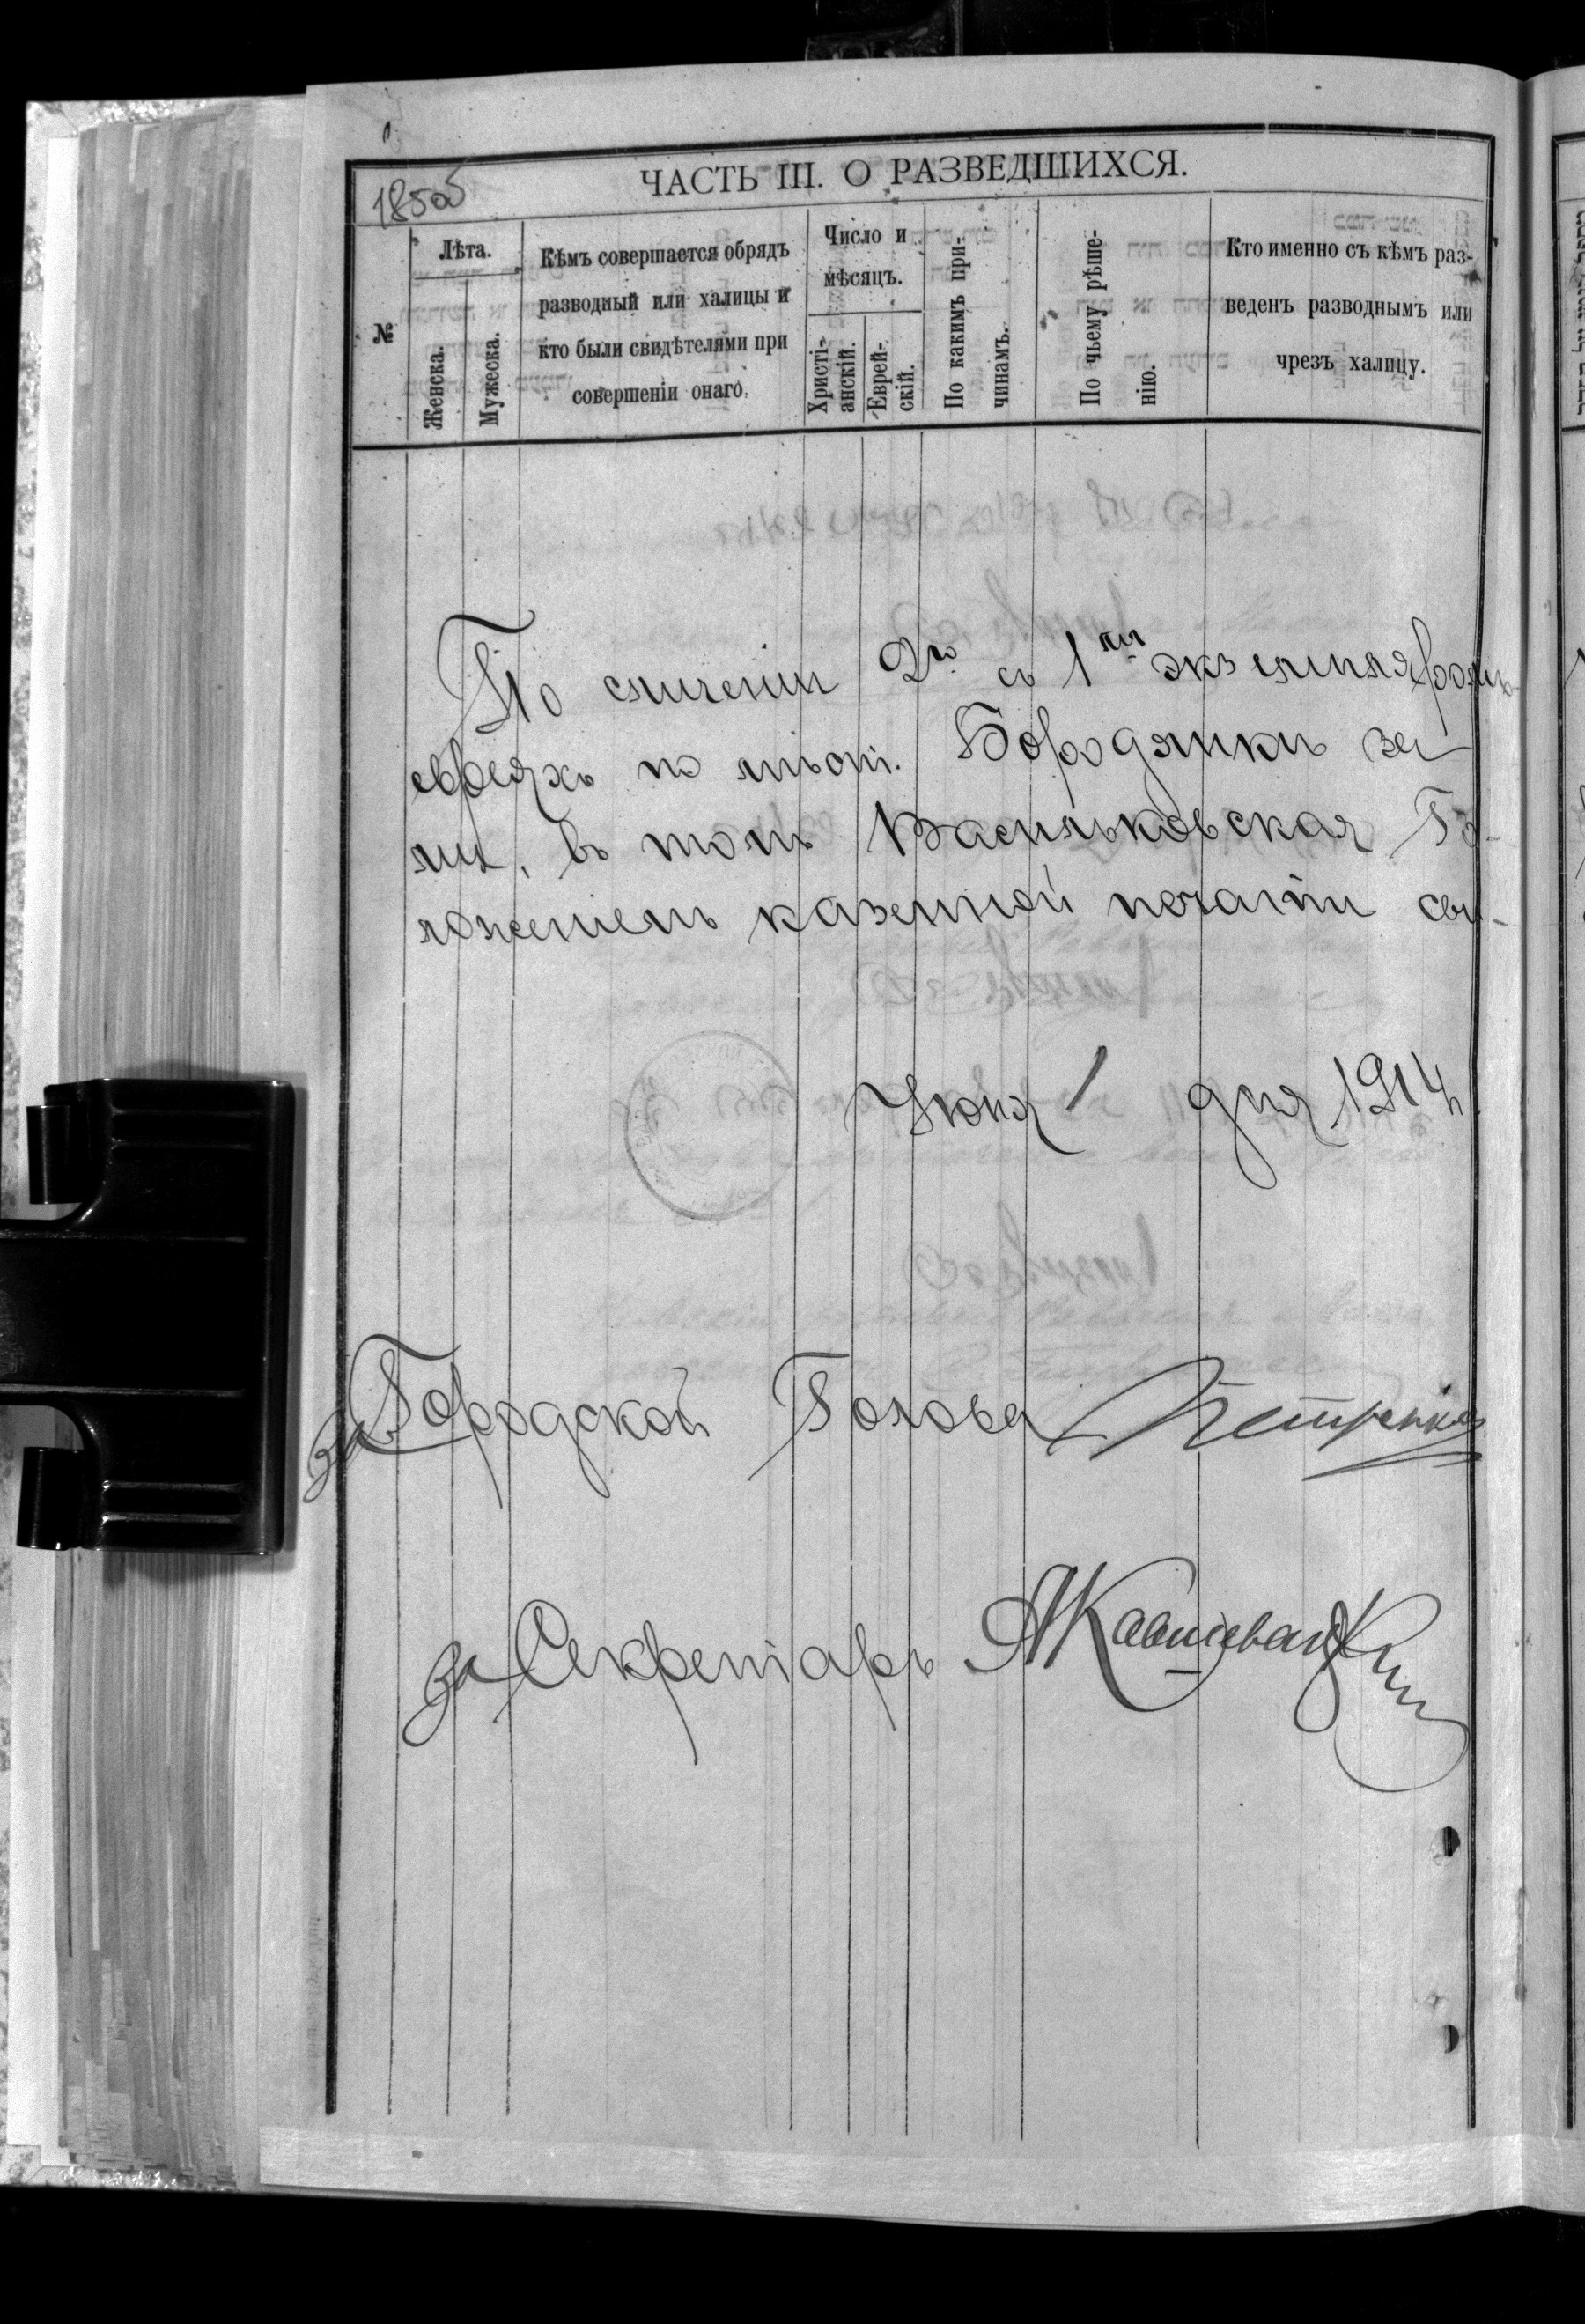 185об
ЧАСТЬ III. О РАЗВЕДШИХСЯ.
№
Лѣта.
Женска.
Мужеска.
Кѣмъ совершается обрядъ
разводный или халицы и
кто были свидѣтелями при
совершеніи онаго.
Число и
мѣсяцъ.
Христі-
анскій.
Еврей-
скій.
По какимъ при-
чинамъ.
По чьему рѣше-
нію.
Кто именно съ кѣмъ раз-
веденъ разводнымъ или
чрезъ халицу.
По сличеніи 2го съ 1мъ экземпляромъ
евреяхъ по мѣст. Бородянкѣ за
ми, въ томъ Васильковская Го-
ложеніемъ казенной печати сви-
Июня 1 дня 1914
за Городской Голова Петренко
за Секретарь